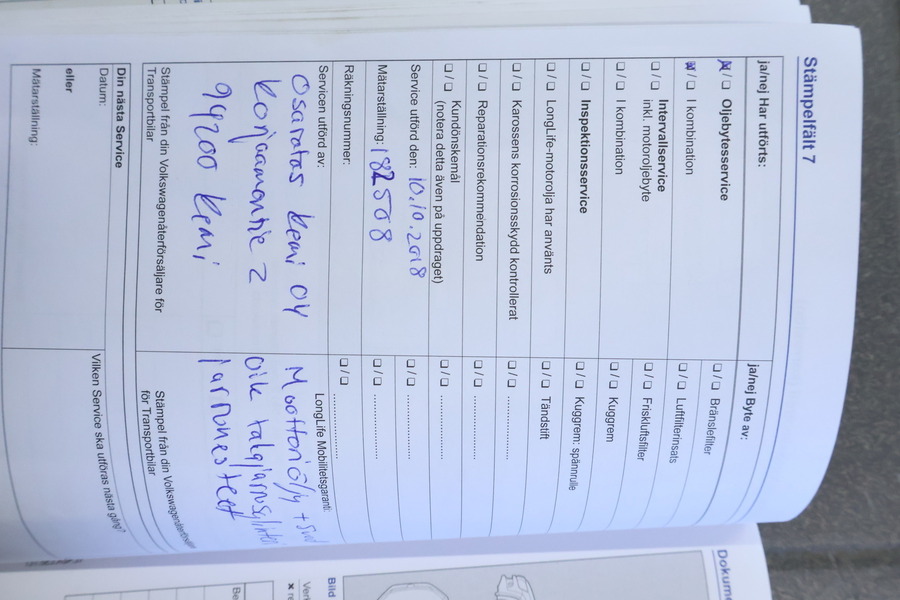 Stämpelfält 7
ja/nej Har utförts:
☒/☐ Oljebytesservice
☒/☐ I kombination
☐/☐ Intervallservice
inkl. motoroljebyte
☐/☐ I kombination
☐/☐ Inspektionsservice
☐/☐ LongLife-motorolja har använts
☐/☐ Karossens korrosionsskydd kontrollerat
☐/☐ Reparationsrekommendation
☐/☐ Kundönskemål
(notera detta även på uppdraget)
Service utförd den: 10.10.2018
Mätarställning: 182508
Räkningsnummer:
Servicen utförd av:
Osaratas Kemi OY
94200 Kemi
Stämpel från din Volkswagenåterförsäljare för
Transportbilar
ja/nej Byte av:
☐/☐ Bränslefilter
☐/☐ Luftfilterinsats
☐/☐ Friskluftsfilter
☐/☐ Kuggrem
☐/☐ Kuggrem: spännrulle
☐/☐ Tändstift
☐/☐ ..............
☐/☐ ..............
☐/☐ ..............
☐/☐ ..............
☐/☐ ..............
☐/☐ ..............
LongLife Mobilitetsgaranti:
Moottoriöljy +
Oik takajarrusylinteri
jarrunesteet
Stämpel från din Volkswagenåterförsäljare
för Transportbilar
Din nästa Service
Datum:
eller
Mätarställning:
Vilken Service ska utföras nästa gång?
Dokume
Bild